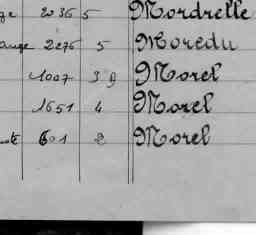 2036 5 Mordrelle
2276 5 Moredu
1007 39 Morel
1651 4 Morel
601 2 Morel